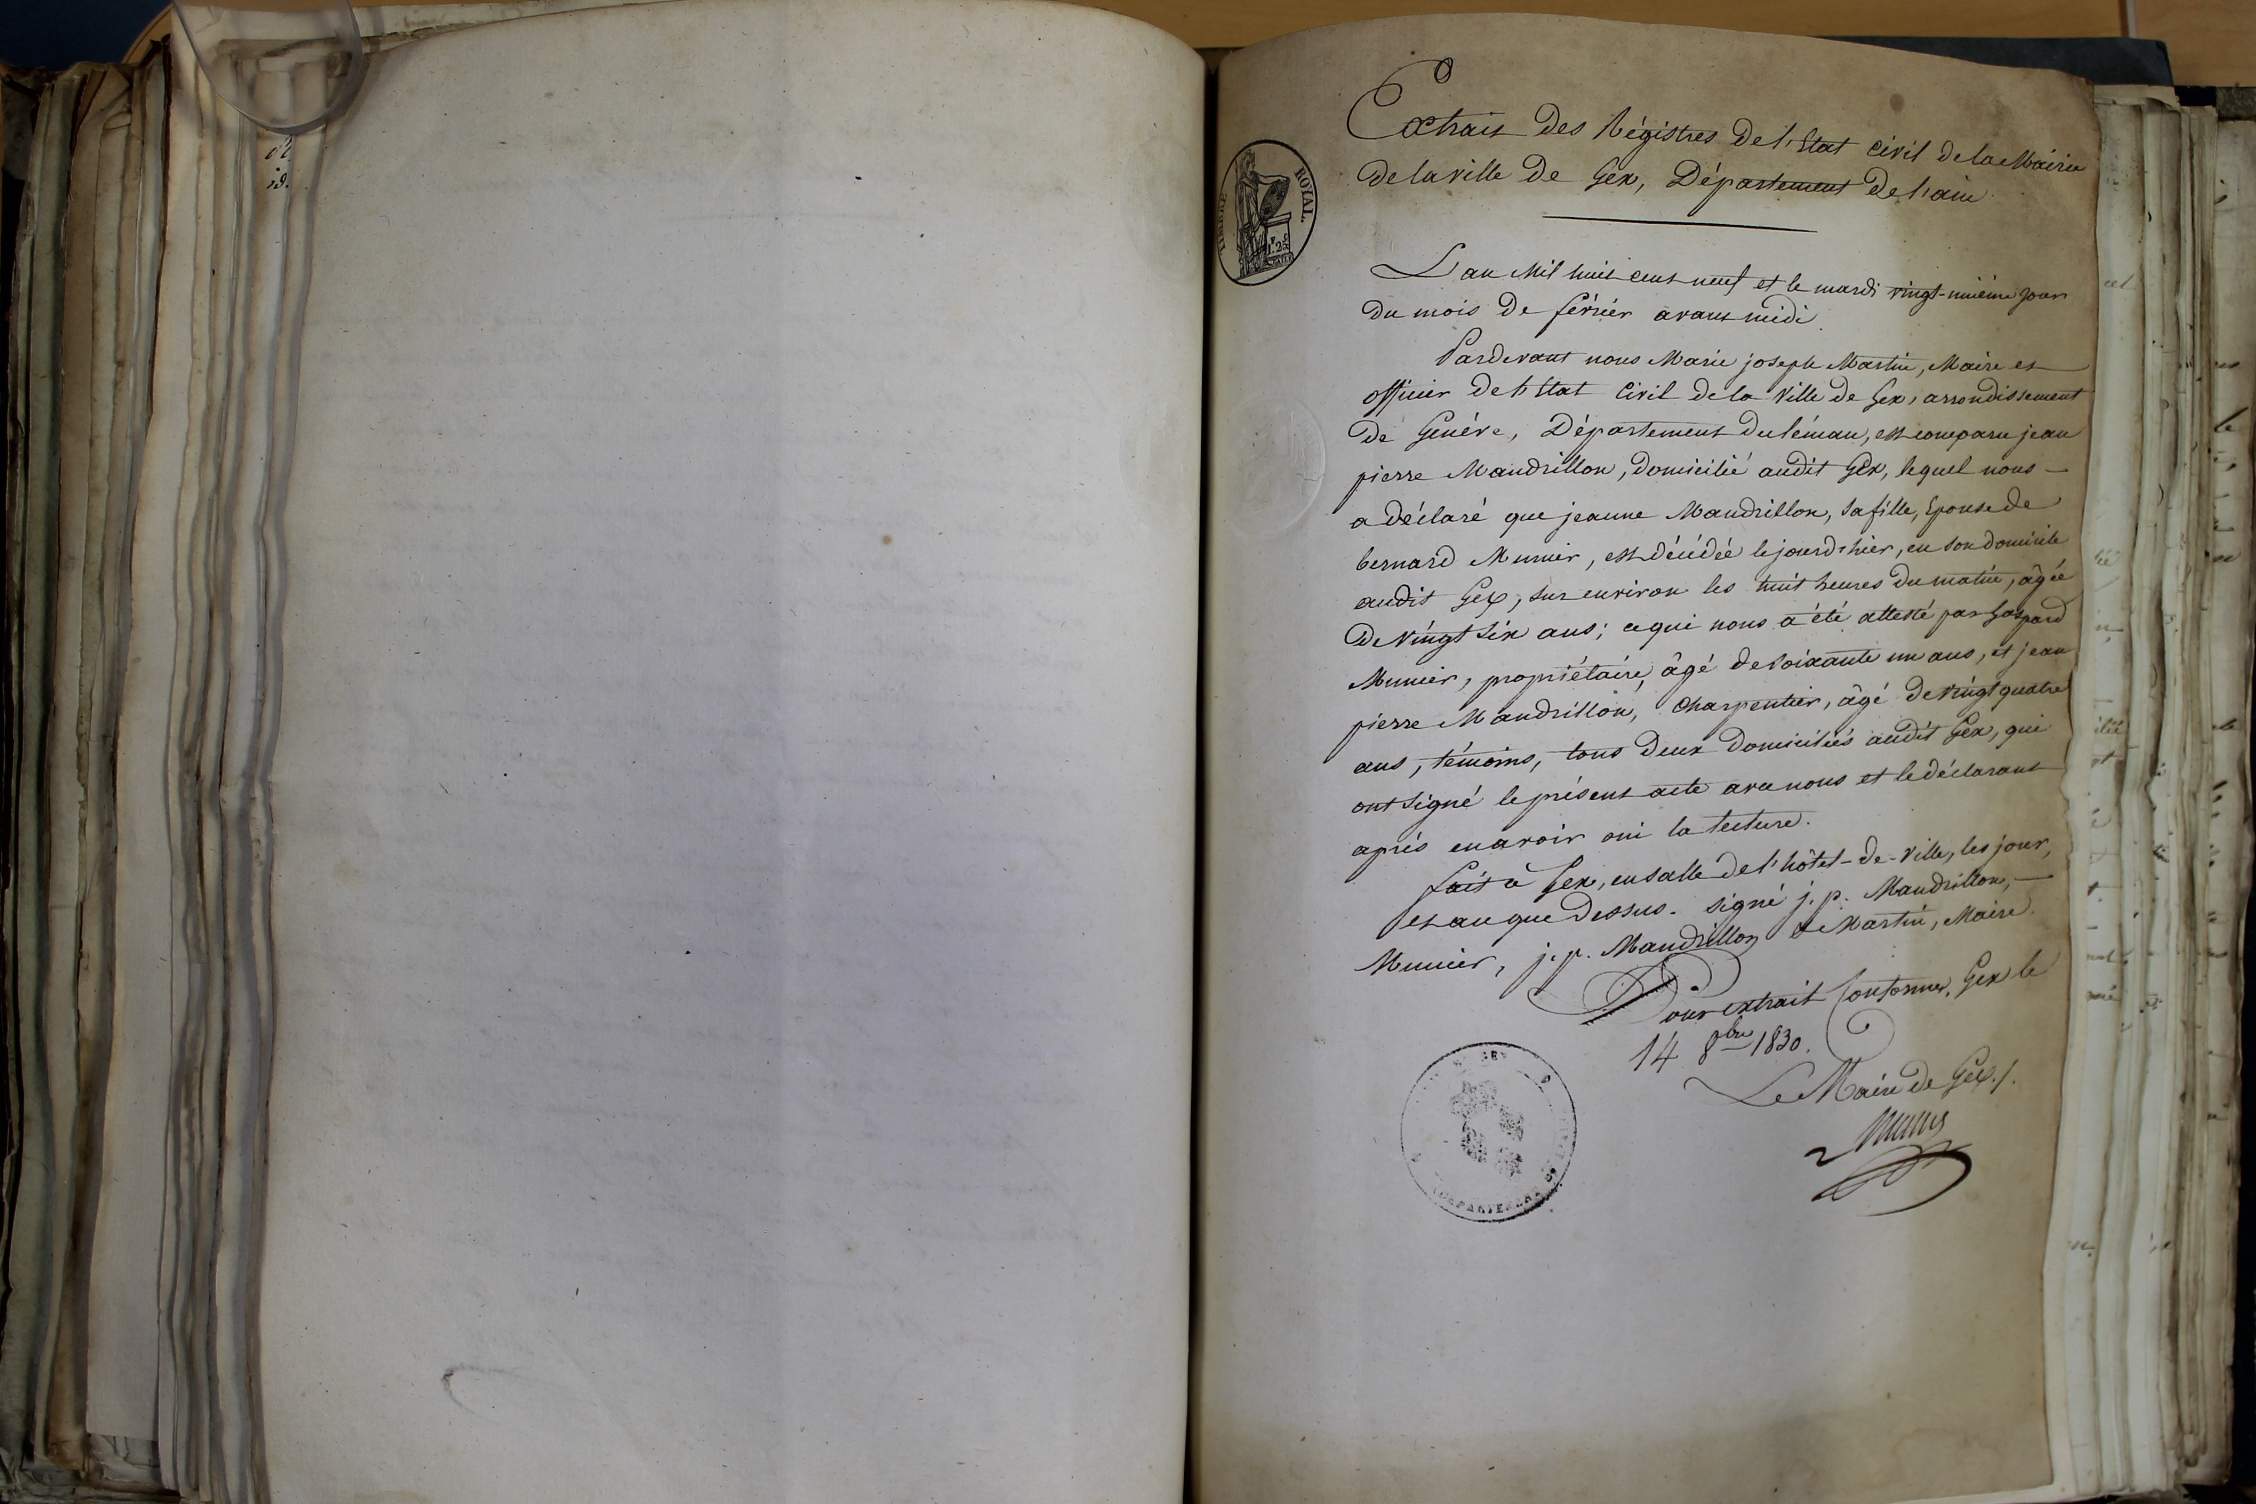 Extrait des Régistres de l'Etat civil de la Mairie
de la ville de Gex, Département de l'ain
TIMBRE ROYAL
L'an Mil huit cent neuf et le mardi vingt-huitième jour
du mois de février avant midi.
Pardevant nous Marie joseph Martin, Maire et
officier de l'Etat Civil de la Ville de Gex, arrondissement
de Genéve, Département du léman, est comparu jean
pierre Mandrillon, domicilié audit Gex, lequel nous
a déclaré que jeanne Mandrillon, sa fille, Epouse de
bernard Munier, est décédée le jourd'hier, en son domicile
audit Gex, sur environ les huit heures du matin, âgée
de vingt six ans; ce qui nous a été attesté par Gaspard
Munier, propriétaire, âgé de soixante un ans, et jean
pierre Mandrillon, charpentier, âgé de vingt quatre
ans, témoins, tous deux domiciliés audit Gex, qui
ont signé le présent acte avec nous et le déclarant
après en avoir oui la lecture.
fait à Gex, en salle de l'hôtel-de-ville, les jour,
et an que dessus. signé j. p. Mandrillon,
Munier, j. p. Mandrillon & Martin, Maire.
Pour extrait Conforme, Gex le
14 8bre 1830.
Le Maire de Gex./.